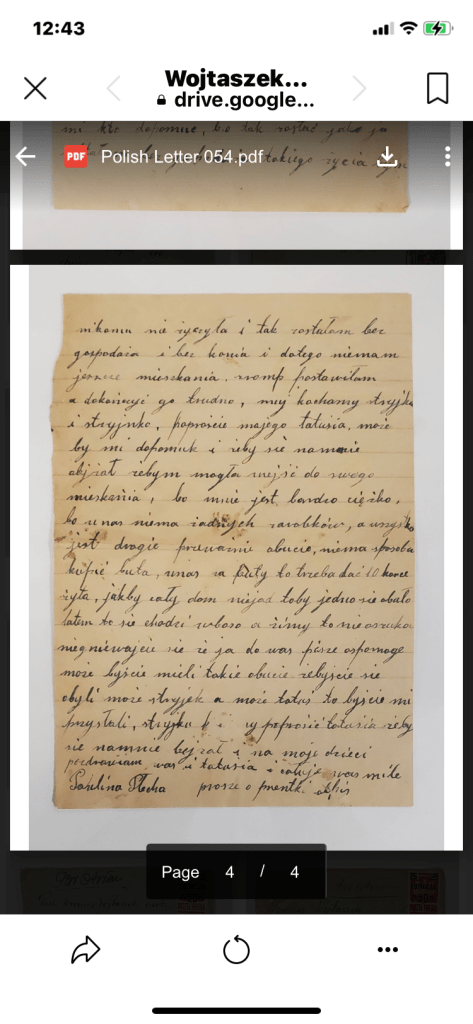 12:43
Wojtaszek...
drive.google...
mi kto dopomuc, bo tak zostać jako ja
takiego życia
PDF Polish Letter 054.pdf
nikomu nie rzyczyła i tak zostałam bez
gospodaża i bez konia i dotego niemam
jeszcze mieszkania, zromp postawiłam
a dokończyć go trudno, muj kochamy stryjku
i stryjnko, poproście mojego tatusia, może
by mi dopomuk i rzeby sie namnie
objżał żebym mogła wejść do swego
mieszkania, bo mnie jest bardzo ciężko,
bo u nas niema żadnych zarobków, a wszystko
jest drogie przeważnie obucie, niema sposobu
kupić buta, unas za buty to trzeba dać 10 korce
żyta, jakby cały dom niejad toby jedno sie obuło
latem to sie chodzi w boso a zimy to nie
niegniewajcie sie że ja do was pisze o spomoge
może byście mieli takie obucie żebyście sie
obyli może stryjek a może tatus to byście mi
przysłali, stryjku poprosić tatusia żeby
sie namnie bejżał i na moje dzieci
pozdrawiam was i tatusia i całuje was mile
Paulina Płecha prosze o prentki otpis
Page 4 / 4